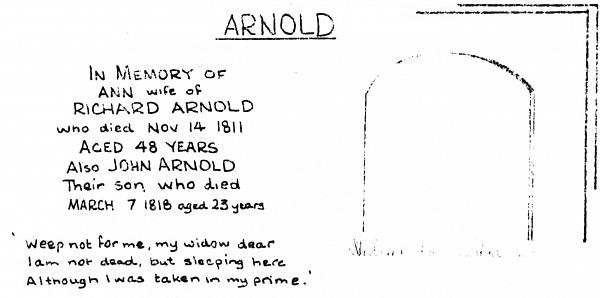 ARNOLD
IN MEMORY OF
ANN wife of
RICHARD ARNOLD
who died Nov 14 1811
AGED 48 YEARS
Also JOHN ARNOLD
Their son who died
MARCH 7 1818 aged 23 years
'Weep not for me, my widow dear
I am not dead, but sleeping here
Although I was taken in my prime.'